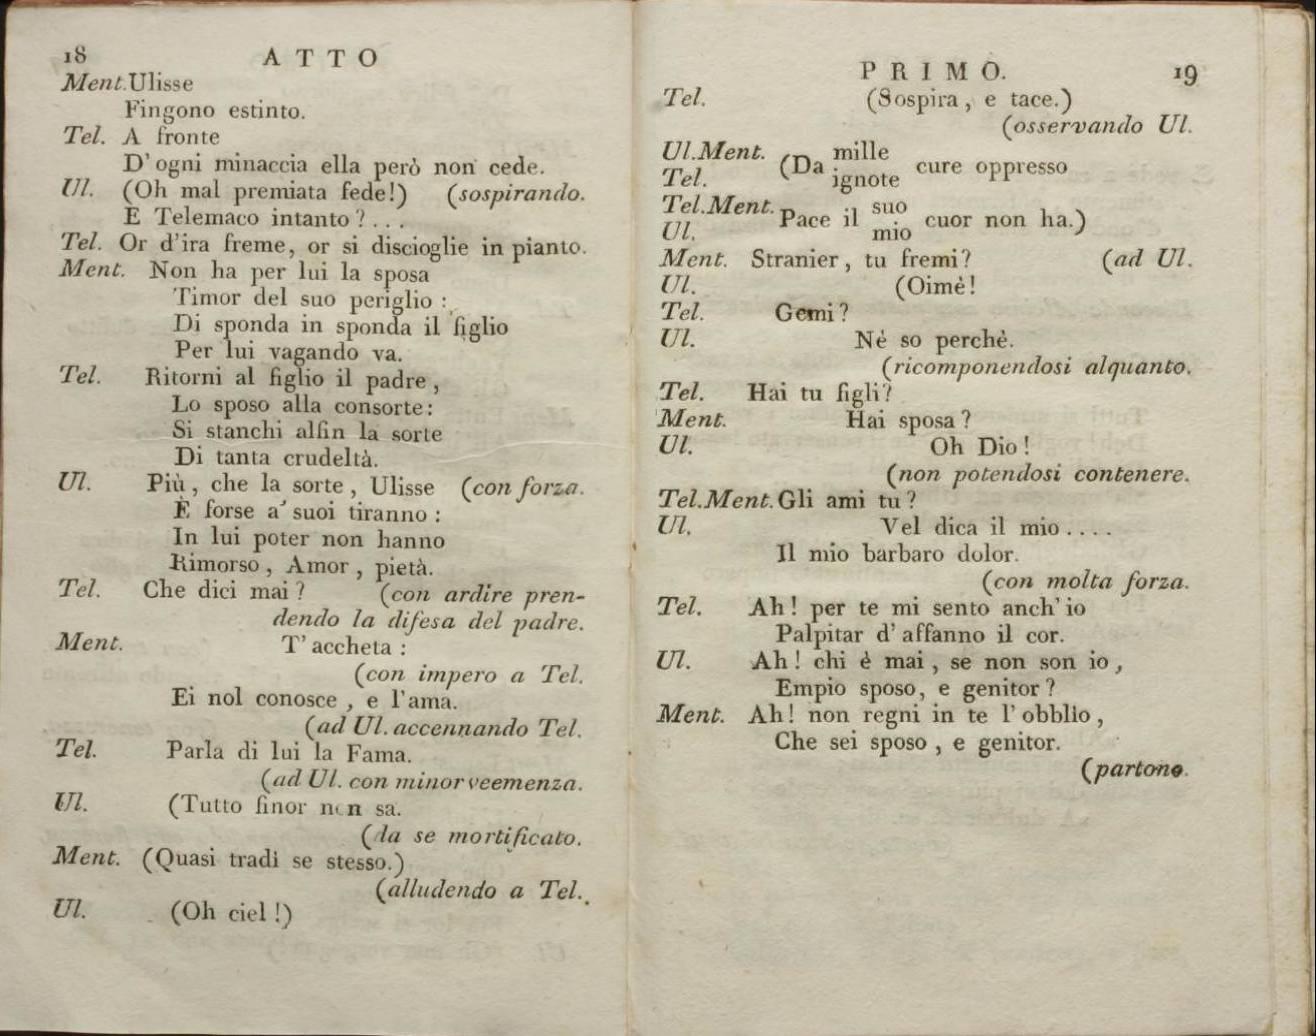 18 ATTO
Ment. Ulisse
Fingono estinto.
Tel. A fronte
D'ogni minaccia ella però non cede.
Ul. (Oh mal premiata fede!) (sospirando.
E Telemaco intanto?...
Tel. Or d'ira freme, or si discioglie in pianto.
Ment. Non ha per lui la sposa
Timor del suo periglio:
Di sponda in sponda il figlio
Per lui vagando va.
Tel. Ritorni al figlio il padre,
Lo sposo alla consorte:
Si stanchi alfin la sorte
Di tanta crudeltà.
Ul. Più, che la sorte, Ulisse (con forza.
È forse a' suoi tiranno:
In lui poter non hanno
Rimorso, Amor, pietà.
Tel. Che dici mai? (con ardire pren-
dendo la difesa del padre.
Ment. T'accheta:
(con impero a Tel.
Ei nol conosce, e l'ama.
(ad Ul. accennando Tel.
Tel. Parla di lui la Fama.
(ad Ul. con minor veemenza.
Ul. (Tutto finor non sa.
(da se mortificato.
Ment. (Quasi tradì se stesso.)
(alludendo a Tel.
Ul. (Oh ciel!)
PRIMO. 19
Tel. (Sospira, e tace.)
(osservando Ul.
Ul.Ment. (Da mille cure oppresso
Tel. ignote
Tel.Ment. Pace il suo cuor non ha.)
Ul. mio
Ment. Stranier, tu fremi? (ad Ul.
Ul. (Oimè!
Tel. Gemi?
Ul. Nè so perchè.
(ricomponendosi alquanto.
Tel. Hai tu figli?
Ment. Hai sposa?
Ul. Oh Dio!
(non potendosi contenere.
Tel.Ment. Gli ami tu?
Ul. Vel dica il mio....
Il mio barbaro dolor.
(con molta forza.
Tel. Ah! per te mi sento anch'io
Palpitar d'affanno il cor.
Ul. Ah! chi è mai, se non son io,
Empio sposo, e genitor?
Ment. Ah! non regni in te l'obblio,
Che sei sposo, e genitor.
(partono.